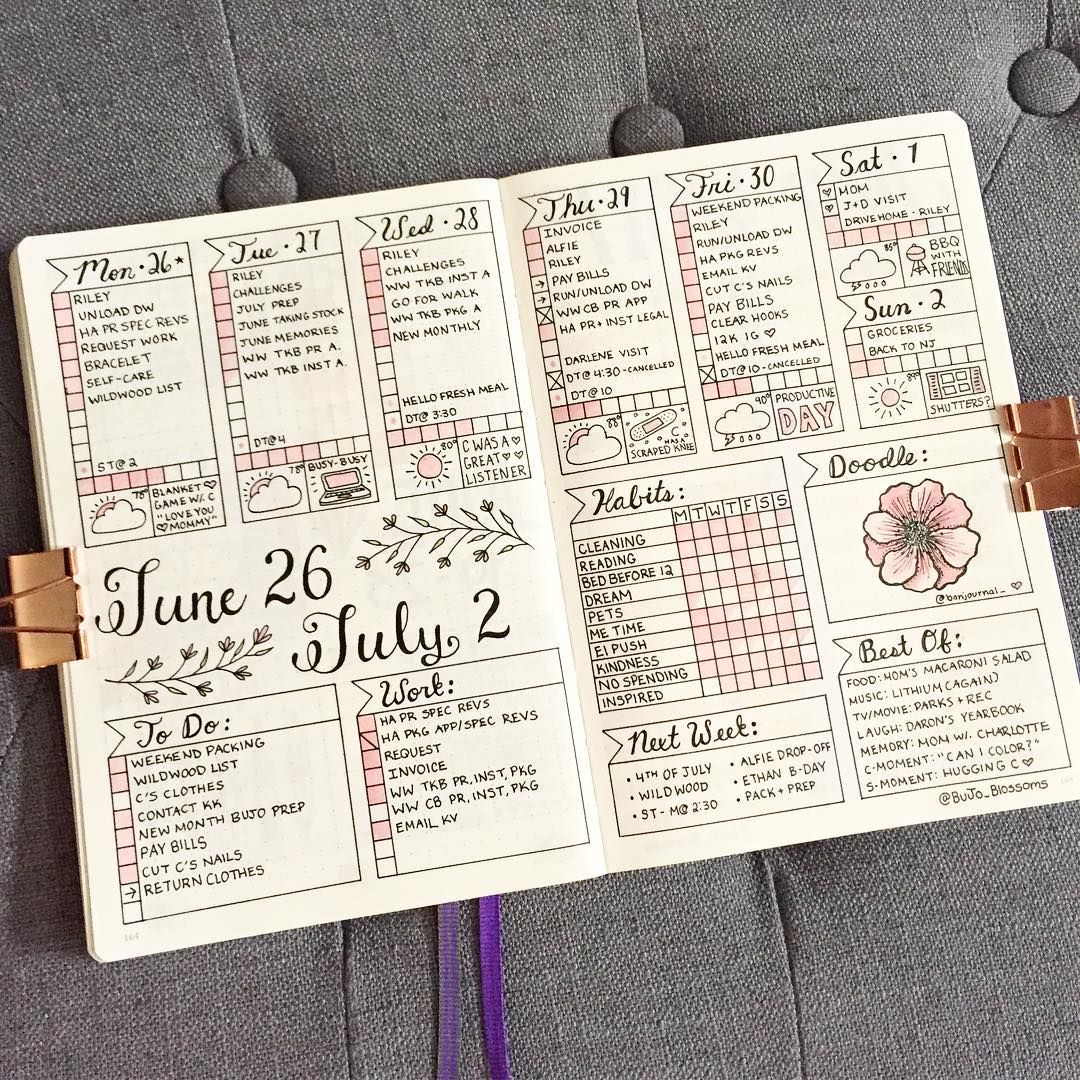 Mon · 26
RILEY
UNLOAD DW
HA PR SPEC REVS
REQUEST WORK
BRACELET
SELF-CARE
WILDWOOD LIST
ST@ 2
78°
BLANKET
GAME W/ C
"LOVE YOU
MOMMY"
Tue · 27
RILEY
CHALLENGES
JULY PREP
JUNE TAKING STOCK
JUNE MEMORIES
WW TKB PR A.
WW TKB INST A.
DT@4
78°
BUSY-BUSY
Wed · 28
RILEY
CHALLENGES
WW TKB INST A
GO FOR WALK
WW TKB PKG A
NEW MONTHLY
HELLO FRESH MEAL
DT@ 3:30
80°
C WAS A
GREAT
LISTENER
June 26
July 2
To Do:
WEEKEND PACKING
WILDWOOD LIST
C'S CLOTHES
CONTACT KK
NEW MONTH BUJO PREP
PAY BILLS
CUT C'S NAILS
RETURN CLOTHES
Work:
HA PR SPEC REVS
HA PKG APP/SPEC REVS
REQUEST
INVOICE
WW TKB PR, INST, PKG
WW CB PR, INST, PKG
EMAIL KV
164
Thu · 29
INVOICE
ALFIE
RILEY
PAY BILLS
RUN/UNLOAD DW
WW CB PR APP
HA PR + INST LEGAL
DARLENE VISIT
DT@ 4:30 - CANCELLED
DT@10
88°
C
HAS A
SCRAPED KNEE
Fri · 30
WEEKEND PACKING
RILEY
RUN/UNLOAD DW
HA PKG REVS
EMAIL KV
CUT C'S NAILS
PAY BILLS
CLEAR HOOKS
12K IG ♡
HELLO FRESH MEAL
DT@10 - CANCELLED
90°
PRODUCTIVE
DAY
Sat · 1
MOM
J+D VISIT
DRIVE HOME - RILEY
85°
BBQ
WITH
FRIENDS
Sun · 2
GROCERIES
BACK TO NJ
SHUTTERS?
Habits:
M T W T F S S
CLEANING
READING
BED BEFORE 12
DREAM
PETS
ME TIME
EI PUSH
KINDNESS
NO SPENDING
INSPIRED
Doodle:
@bonjournal_ ♡
Next Week:
• 4TH OF JULY
• WILDWOOD
• ST - M@ 2:30
• ALFIE DROP-OFF
• ETHAN B-DAY
• PACK + PREP
Best Of:
FOOD: MOM'S MACARONI SALAD
MUSIC: LITHIUM (AGAIN)
TV/MOVIE: PARKS + REC
LAUGH: DARON'S YEARBOOK
MEMORY: MOM W/ CHARLOTTE
C-MOMENT: "CAN I COLOR?"
S-MOMENT: HUGGING C ♡
@BUJO_BLOSSOMS